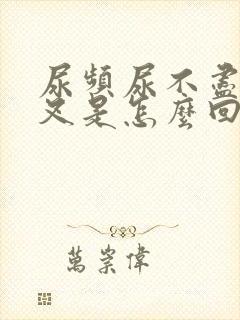 尿頻尿不盡
又是怎麼回
萬崇偉